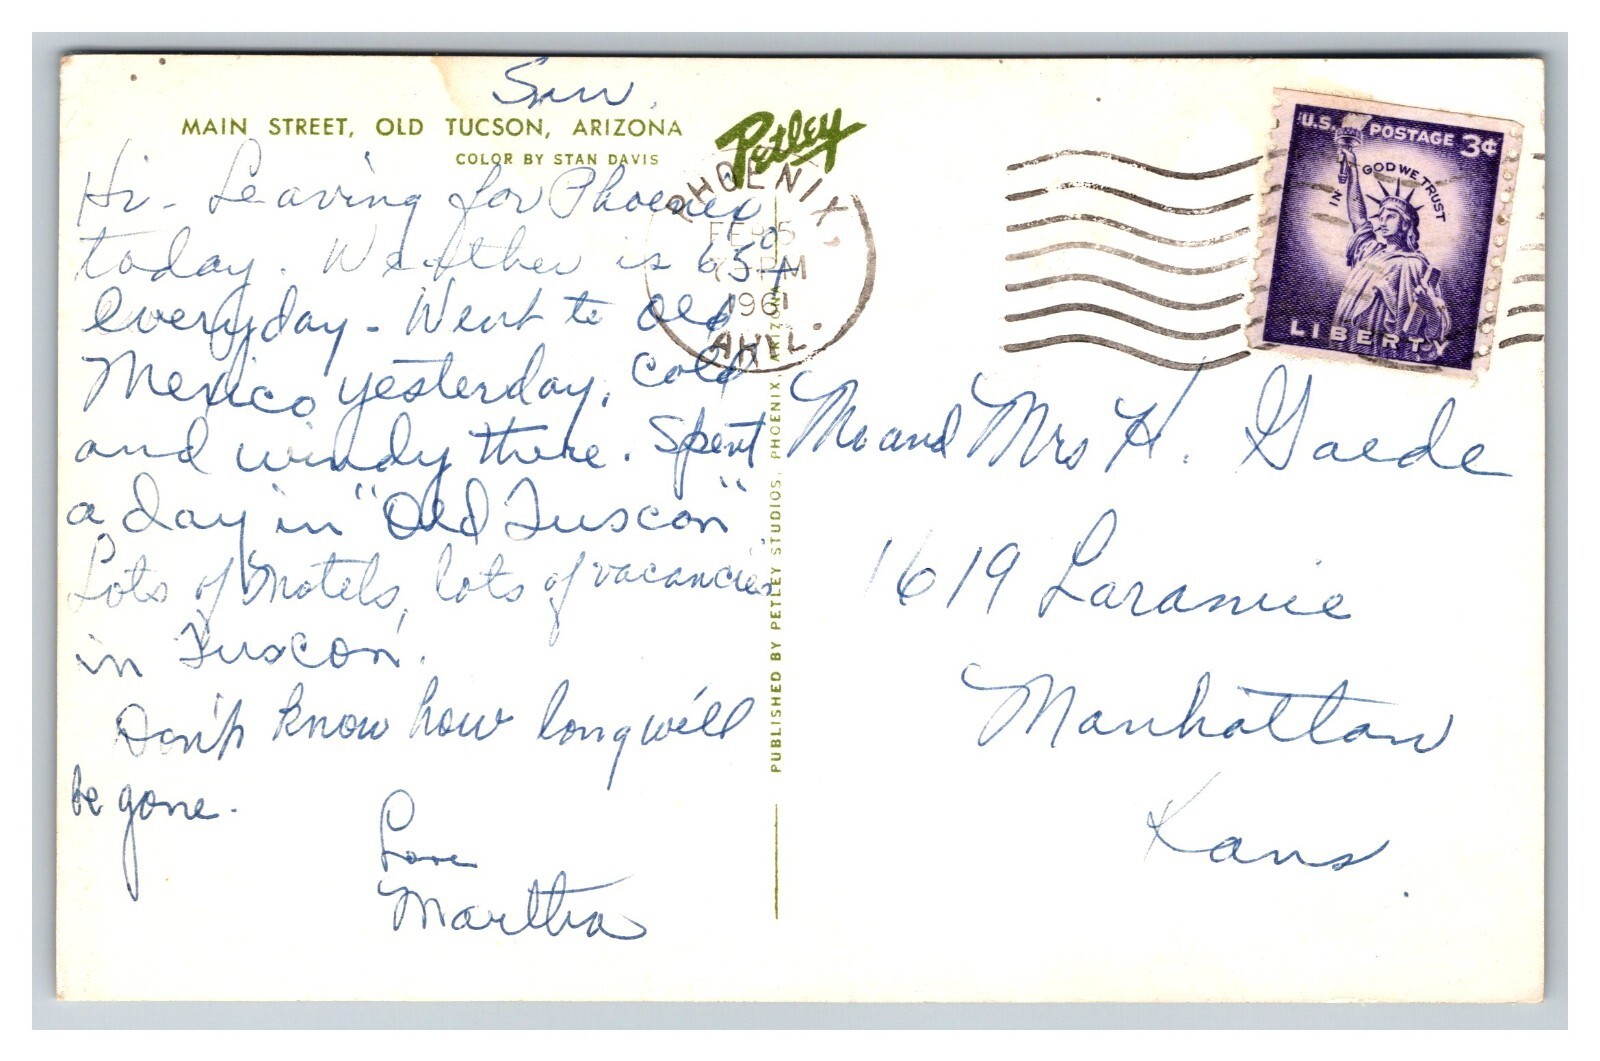 Sun.
MAIN STREET, OLD TUCSON, ARIZONA
COLOR BY STAN DAVIS
Petley
Hi - Leaving for Phoenix
today. Weather is 65°+
everyday - Went to old
Mexico yesterday. Cold
and windy there. Spent
a day in "Old Tuscon".
Lots of motels, lots of vacancies
in Tuscon.
Don't know how long will
be gone.
Love
Martha
PUBLISHED BY PETLEY STUDIOS, PHOENIX, ARIZONA
PHOENIX,
FEB 5
PM
1961
ARIZ.
U.S. POSTAGE 3¢
IN GOD WE TRUST
LIBERTY
Mr and Mrs H. Gaede
1619 Laramie
Manhattan
Kans.